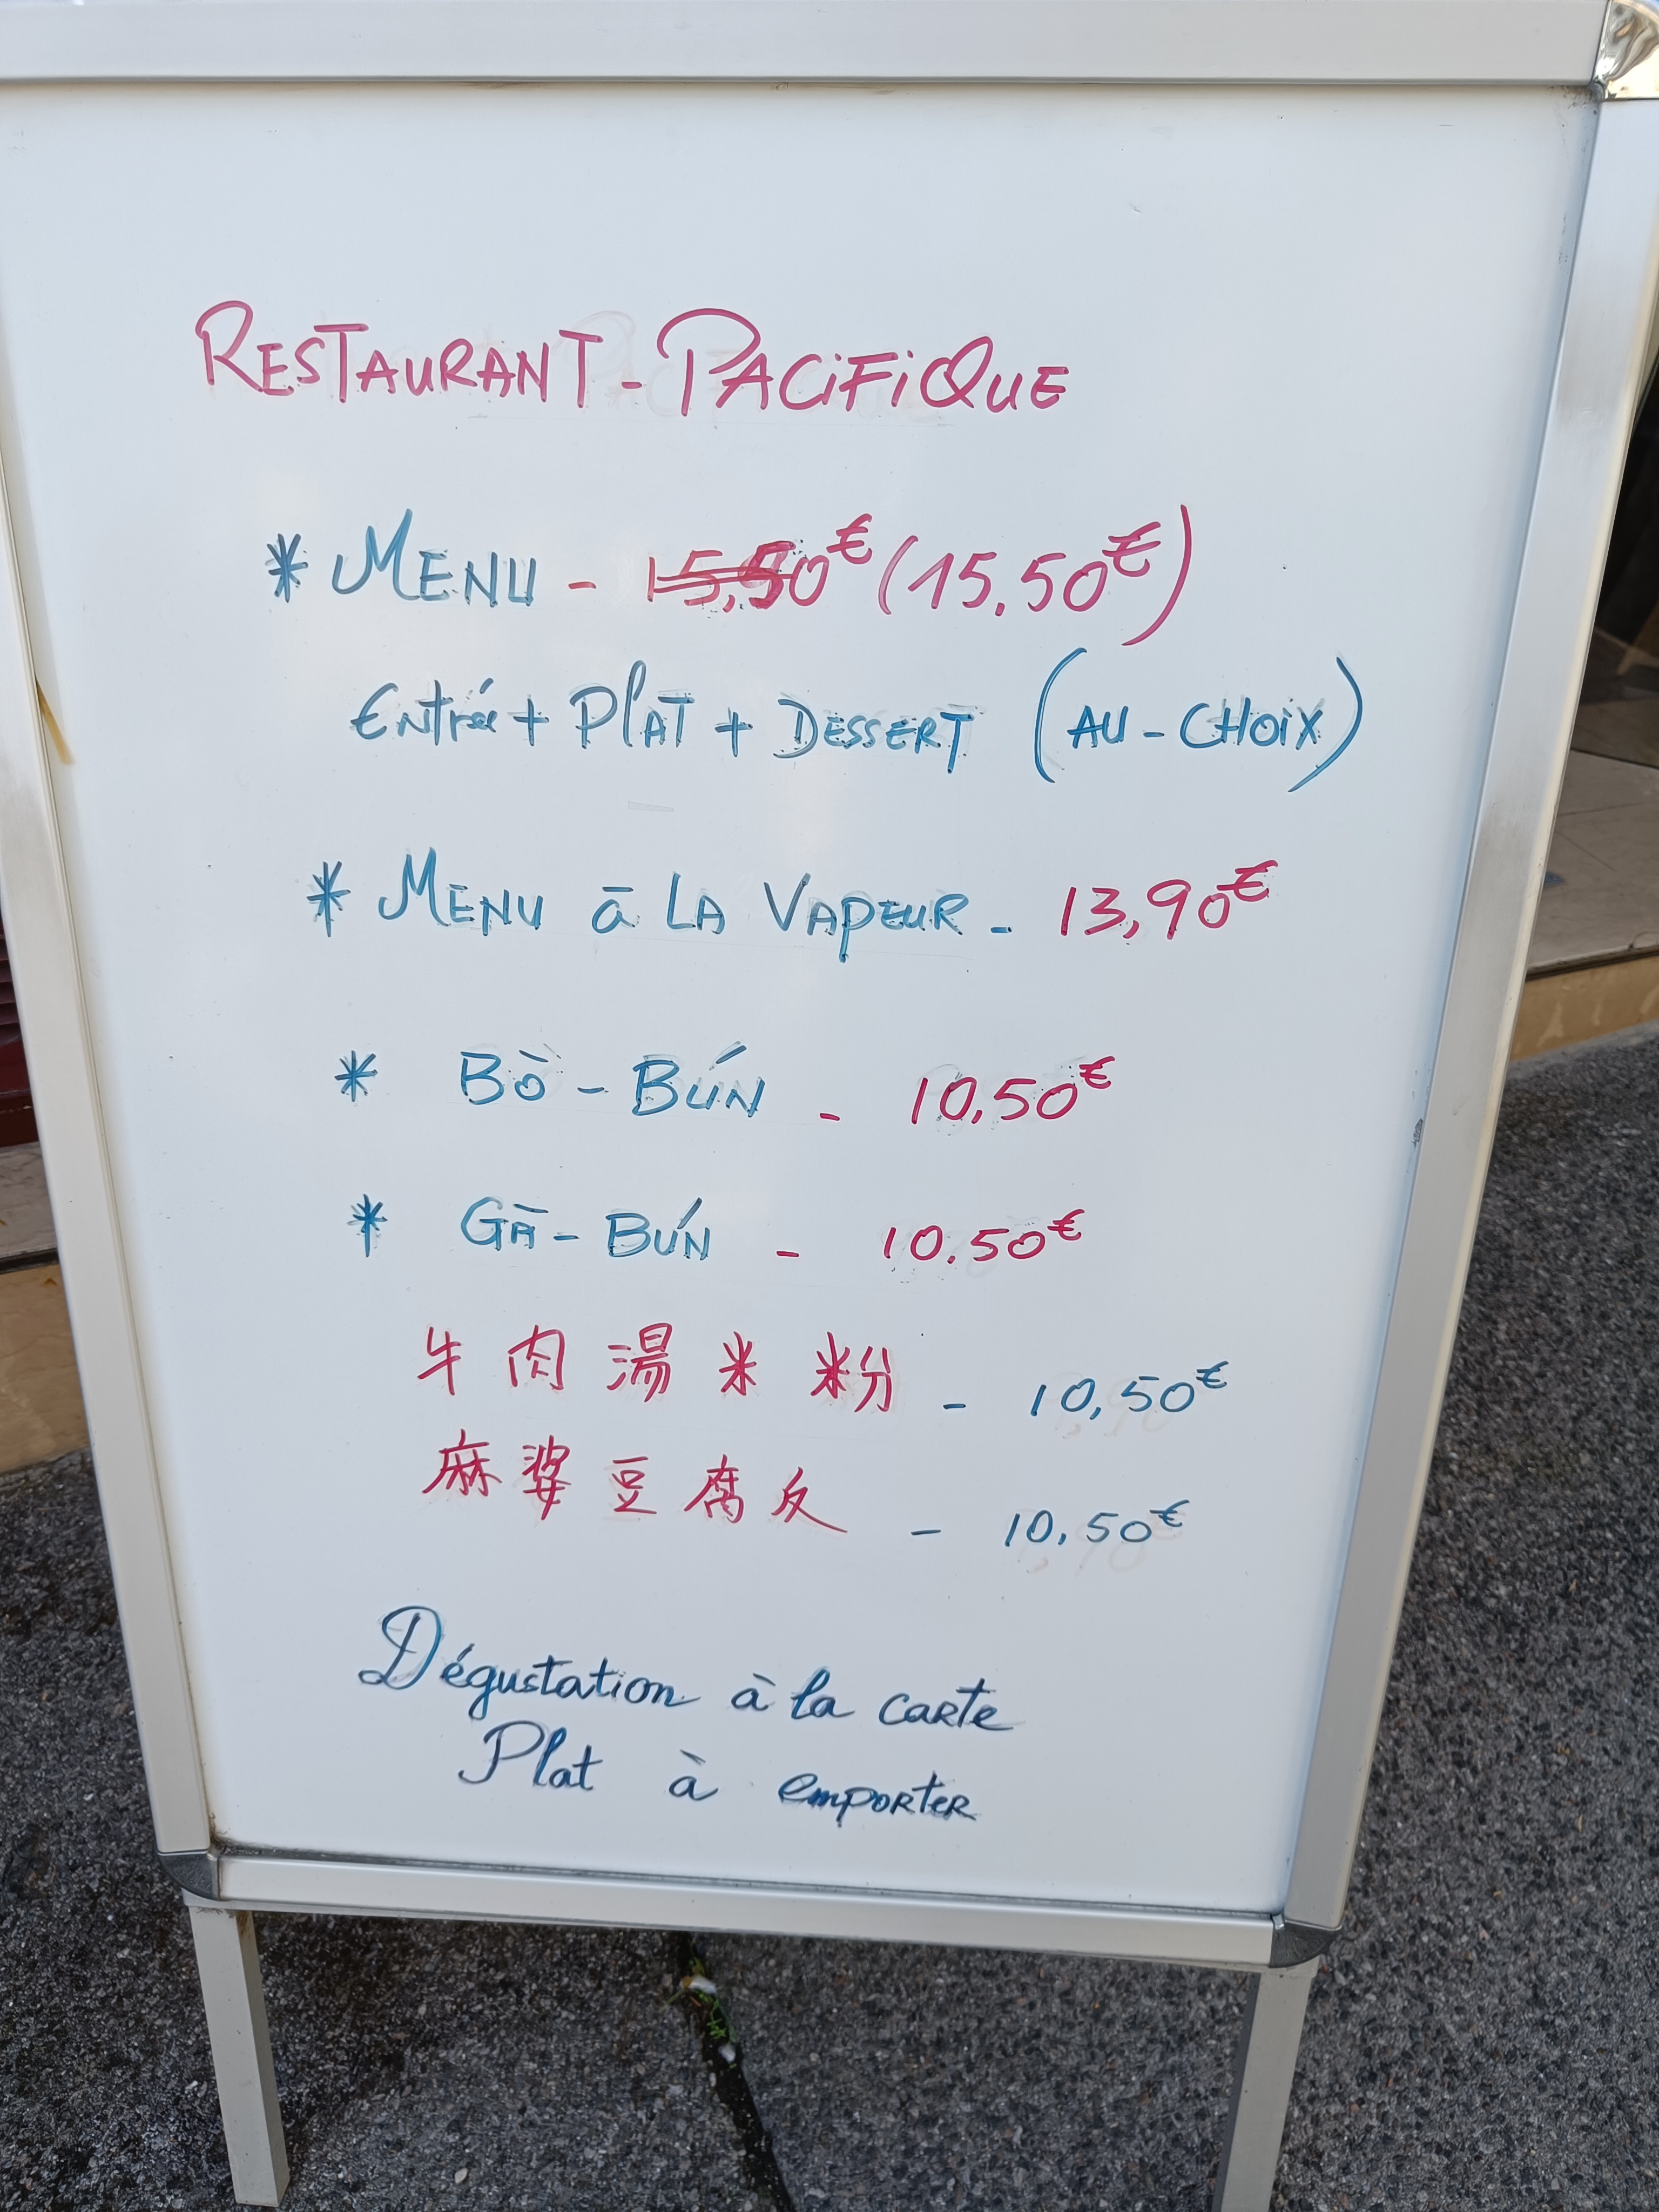 RESTAURANT - PACIFIQUE
* MENU - 15,50€ (15,50€)
Entrée + PLAT + DESSERT (AU - CHOIX)
* MENU à LA VAPEUR - 13,90€
* Bò - BÚN - 10,50€
* Gà - BÚN - 10,50€
牛肉湯米粉 - 10,50€
麻婆豆腐反 - 10,50€
Dégustation à la carte
Plat à emporter